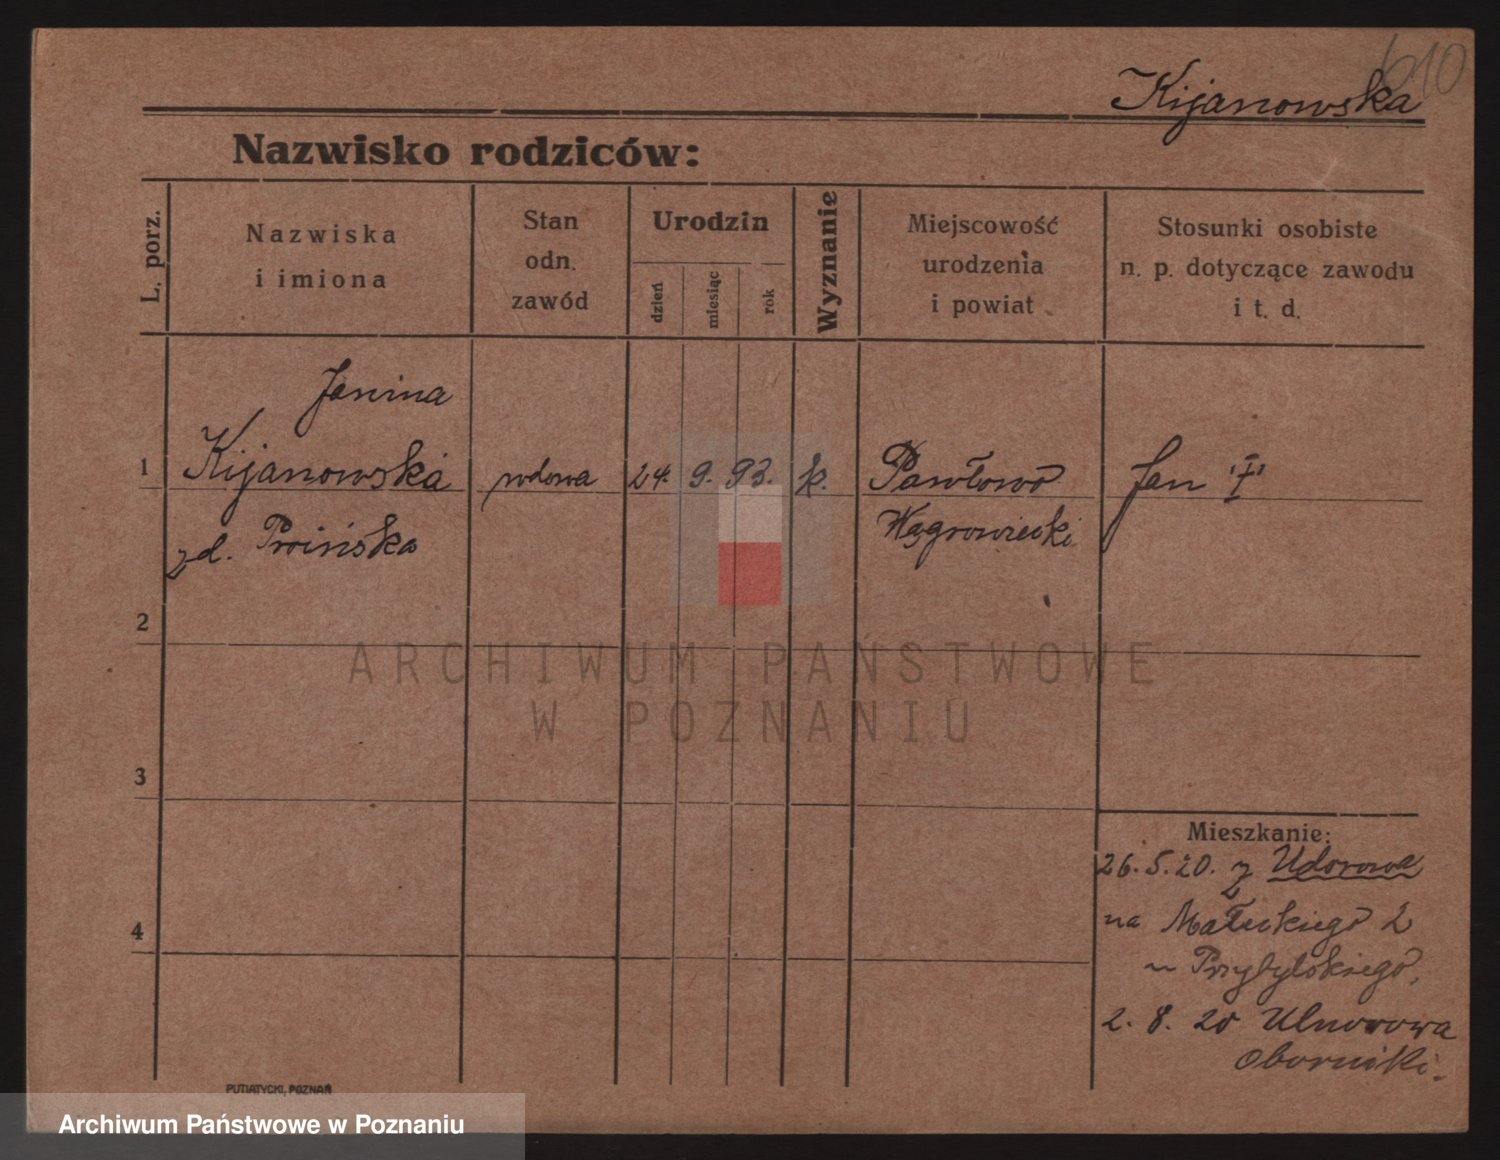 610
Kijanowska
Nazwisko rodziców:
L. porz.
Nazwiska
i imiona
Stan
odn.
zawód
Urodzin
dzień
miesiąc
rok
Wyznanie
Miejscowość
urodzenia
i powiat
Stosunki osobiste
n. p. dotyczące zawodu
i t. d.
Janina
1 Kijanowska wdowa 24. 9. 93. k. Pawłowo Jan
zd. Wągrowiecki
2
3
4
ARCHIWUM PAŃSTWOWE
W POZNANIU
Mieszkanie:
26.5.20. z
na Małeckiego 2
u Przybylskiego,
2. 8. 20
Oborniki.
PUTIATYCKI, POZNAŃ
Archiwum Państwowe w Poznaniu